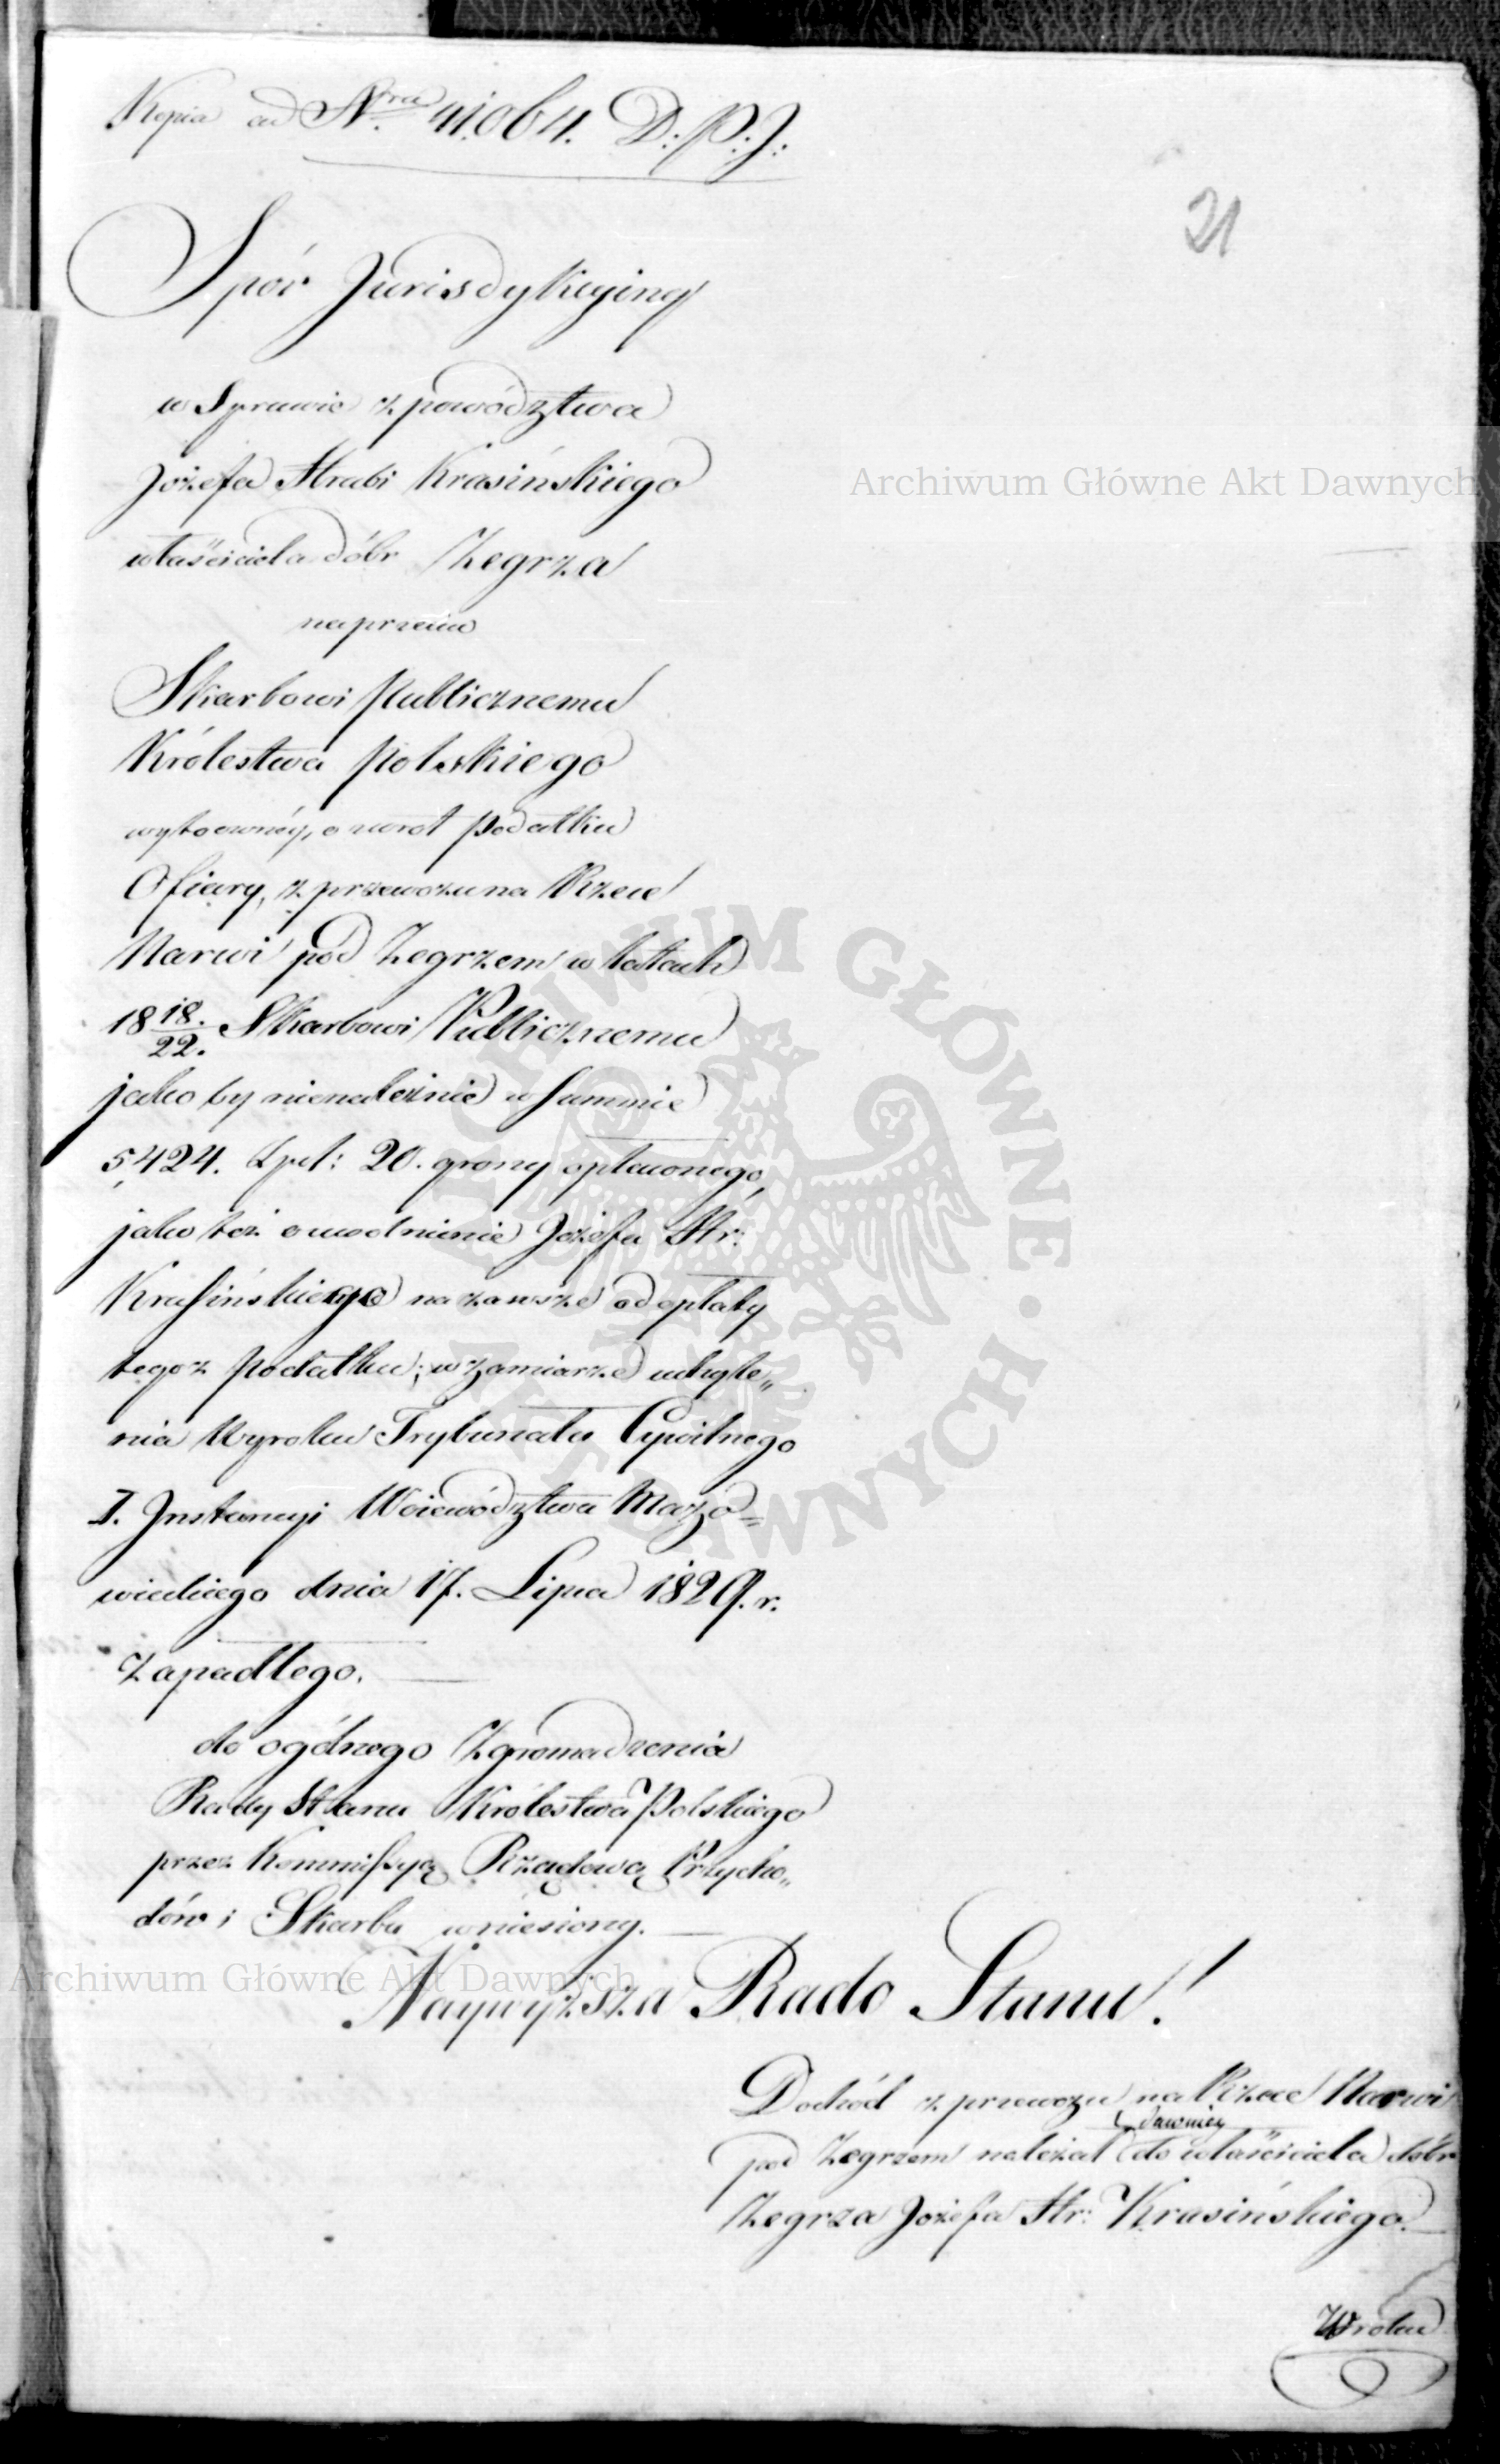 Kopia ad Nra 41064. D: P: J:
21
Spór Jurisdykcyiny
w Sprawie z powództwa
Józefa Hrabi Krasińskiego
właściciela dóbr Zegrza
naprzeciw
Skarbowi Publicznemu
Królestwa Polskiego
wytoczonéy, o zwrot Podatku
Ofiary, z przewozu na Rzece
Narwi pod Zegrzem w latach
18 18./22. Skarbowi Publicznemu
jako by nienależnie w Summie
5,424. Złpol: 20. groszy opłaconego,
jako też o uwolnienie Józefa Hr:
Krasińskiego na zawsze od opłaty
tegoż Podatku; w zamiarze uchyle„
nia Wyroku Trybunału Cywilnego
I. Instancyi Woiewództwa Mazo=
wieckiego dnia 17. Lipca 1829. r.
zapadłego.
do ogólnego Zgromadzenia
Rady Stanu Królestwa Polskiego
przez Kommissyą Rządową Przycho„
dów i Skarbu wniesiony.
Naywyższa Rado Stanu!
Dochód z przewozu na Rzece Narwi
dawniey
pod Zegrzem należał do właściciela dóbr
Zegrza Józefa Hr: Krasińskiego.
W roku
Archiwum Główne Akt Dawnych
Archiwum Główne Akt Dawnych
ARCHIWUM GŁÓWNE · AKT DAWNYCH ·